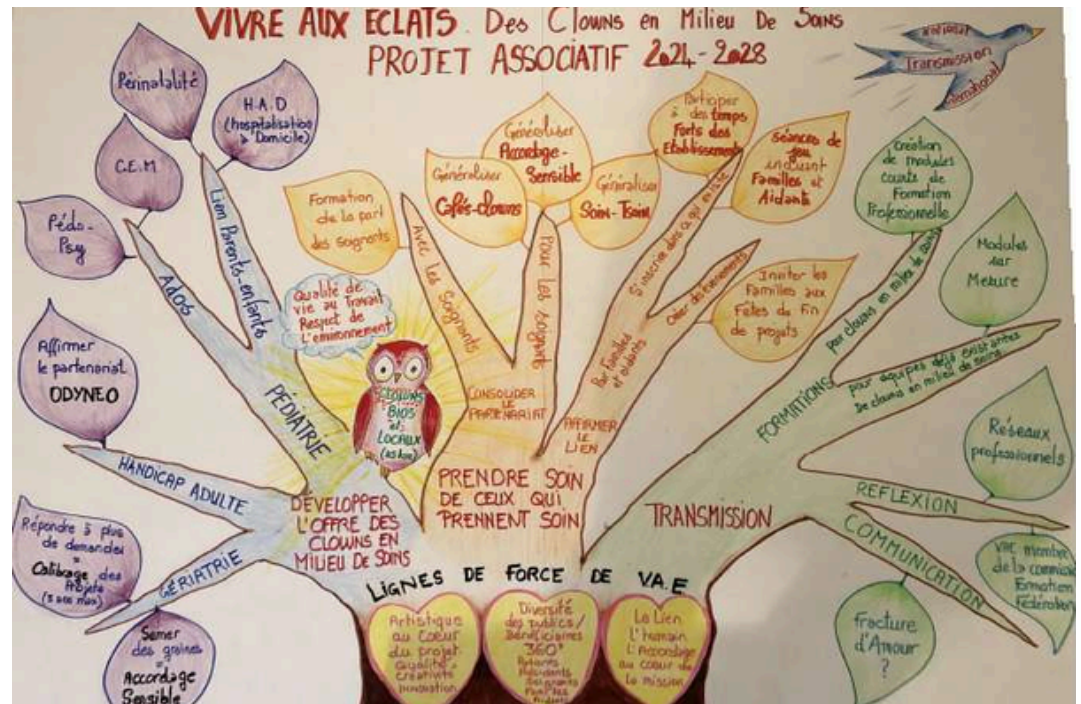 VIVRE AUX ECLATS. Des Clowns en Milieu De Soins
PROJET ASSOCIATIF 2024-2028
National
Transmission
International
Périnatalité
H.A.D
(hospitalisation
à Domicile)
C.E.M
Pédo-
Psy
Affirmer
le partenariat
ODYNEO
Répondre à plus
de demandes
=
Calibrage des
Projets
(3 ans max)
Semer
des graines
=
Accordage
Sensible
Lien Parents-enfants
Ados
PÉDIATRIE
HANDICAP ADULTE
GÉRIATRIE
DÉVELOPPER
L'OFFRE DES
CLOWNS EN
MILIEU DE SOINS
Qualité de
vie au Travail
Respect de
L'environnement
CLOWNS
BIOS
et
LOCAUX
Formation
de la part
des soignants
Généraliser
Cafés-clowns
Généraliser
Accordage-
Sensible
Généraliser
Soin-Tsoin
Participer
à des temps
Forts des
Etablissements
Séances de
jeu
incluant
Familles et
Aidants
Inviter les
Familles aux
Fêtes de Fin
de projets
Avec Les Soignants
Pour Les Soignants
S'inscrire dans ce qui existe
Créer des évènements
Familles
et aidants
CONSOLIDER
LE
PARTENARIAT
AFFIRMER
LE
LIEN
PRENDRE SOIN
DE CEUX QUI
PRENNENT SOIN
Création
de modules
courts de
Formation
Professionnelle
Modules
sur
Mesure
Réseaux
professionnels
VAE membre
de la commission
Formation
Fédération
Fracture
d'Amour
?
pour clowns en milieu de soins
pour équipes déjà existantes
De clowns en milieu de soins
FORMATIONS
REFLEXION
COMMUNICATION
TRANSMISSION
LIGNES DE FORCE DE VA.E
Artistique
au Coeur
du projet
Qualité
créativité
Innovation
Diversité
des publics/
Bénéficiaires
360°
Résidents
Soignants
Familles
Le Lien
L'humain
L'Accordage
au coeur de
la mission